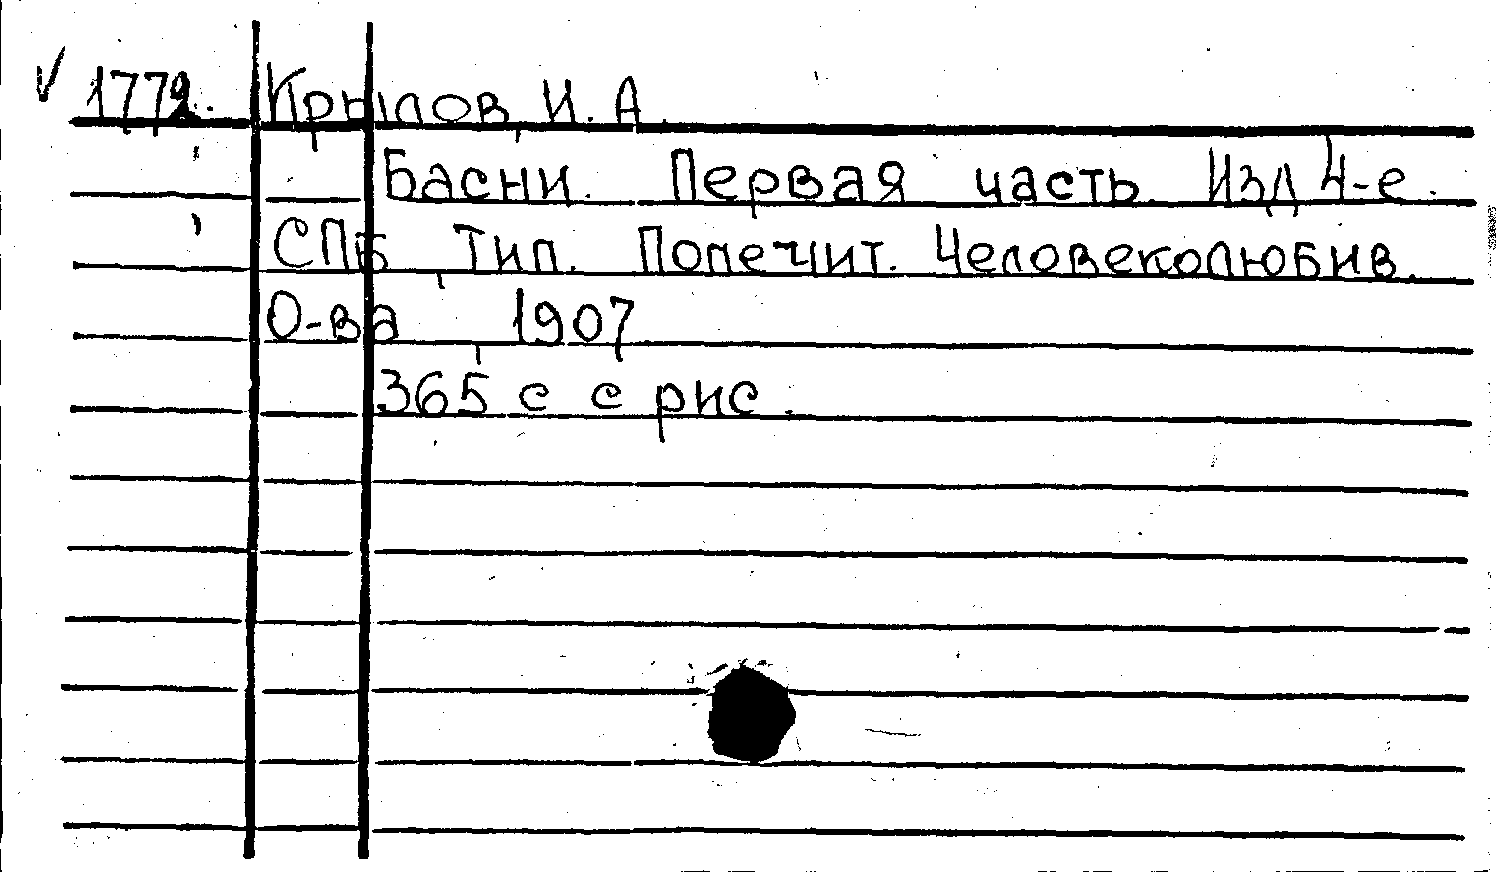 1772. Крылов, И. А.
Басни. Первая часть. Изд 4-е.
СПб, Тип. Попечит. Человеколюбив.
О-ва, 1907
365 с с рис.